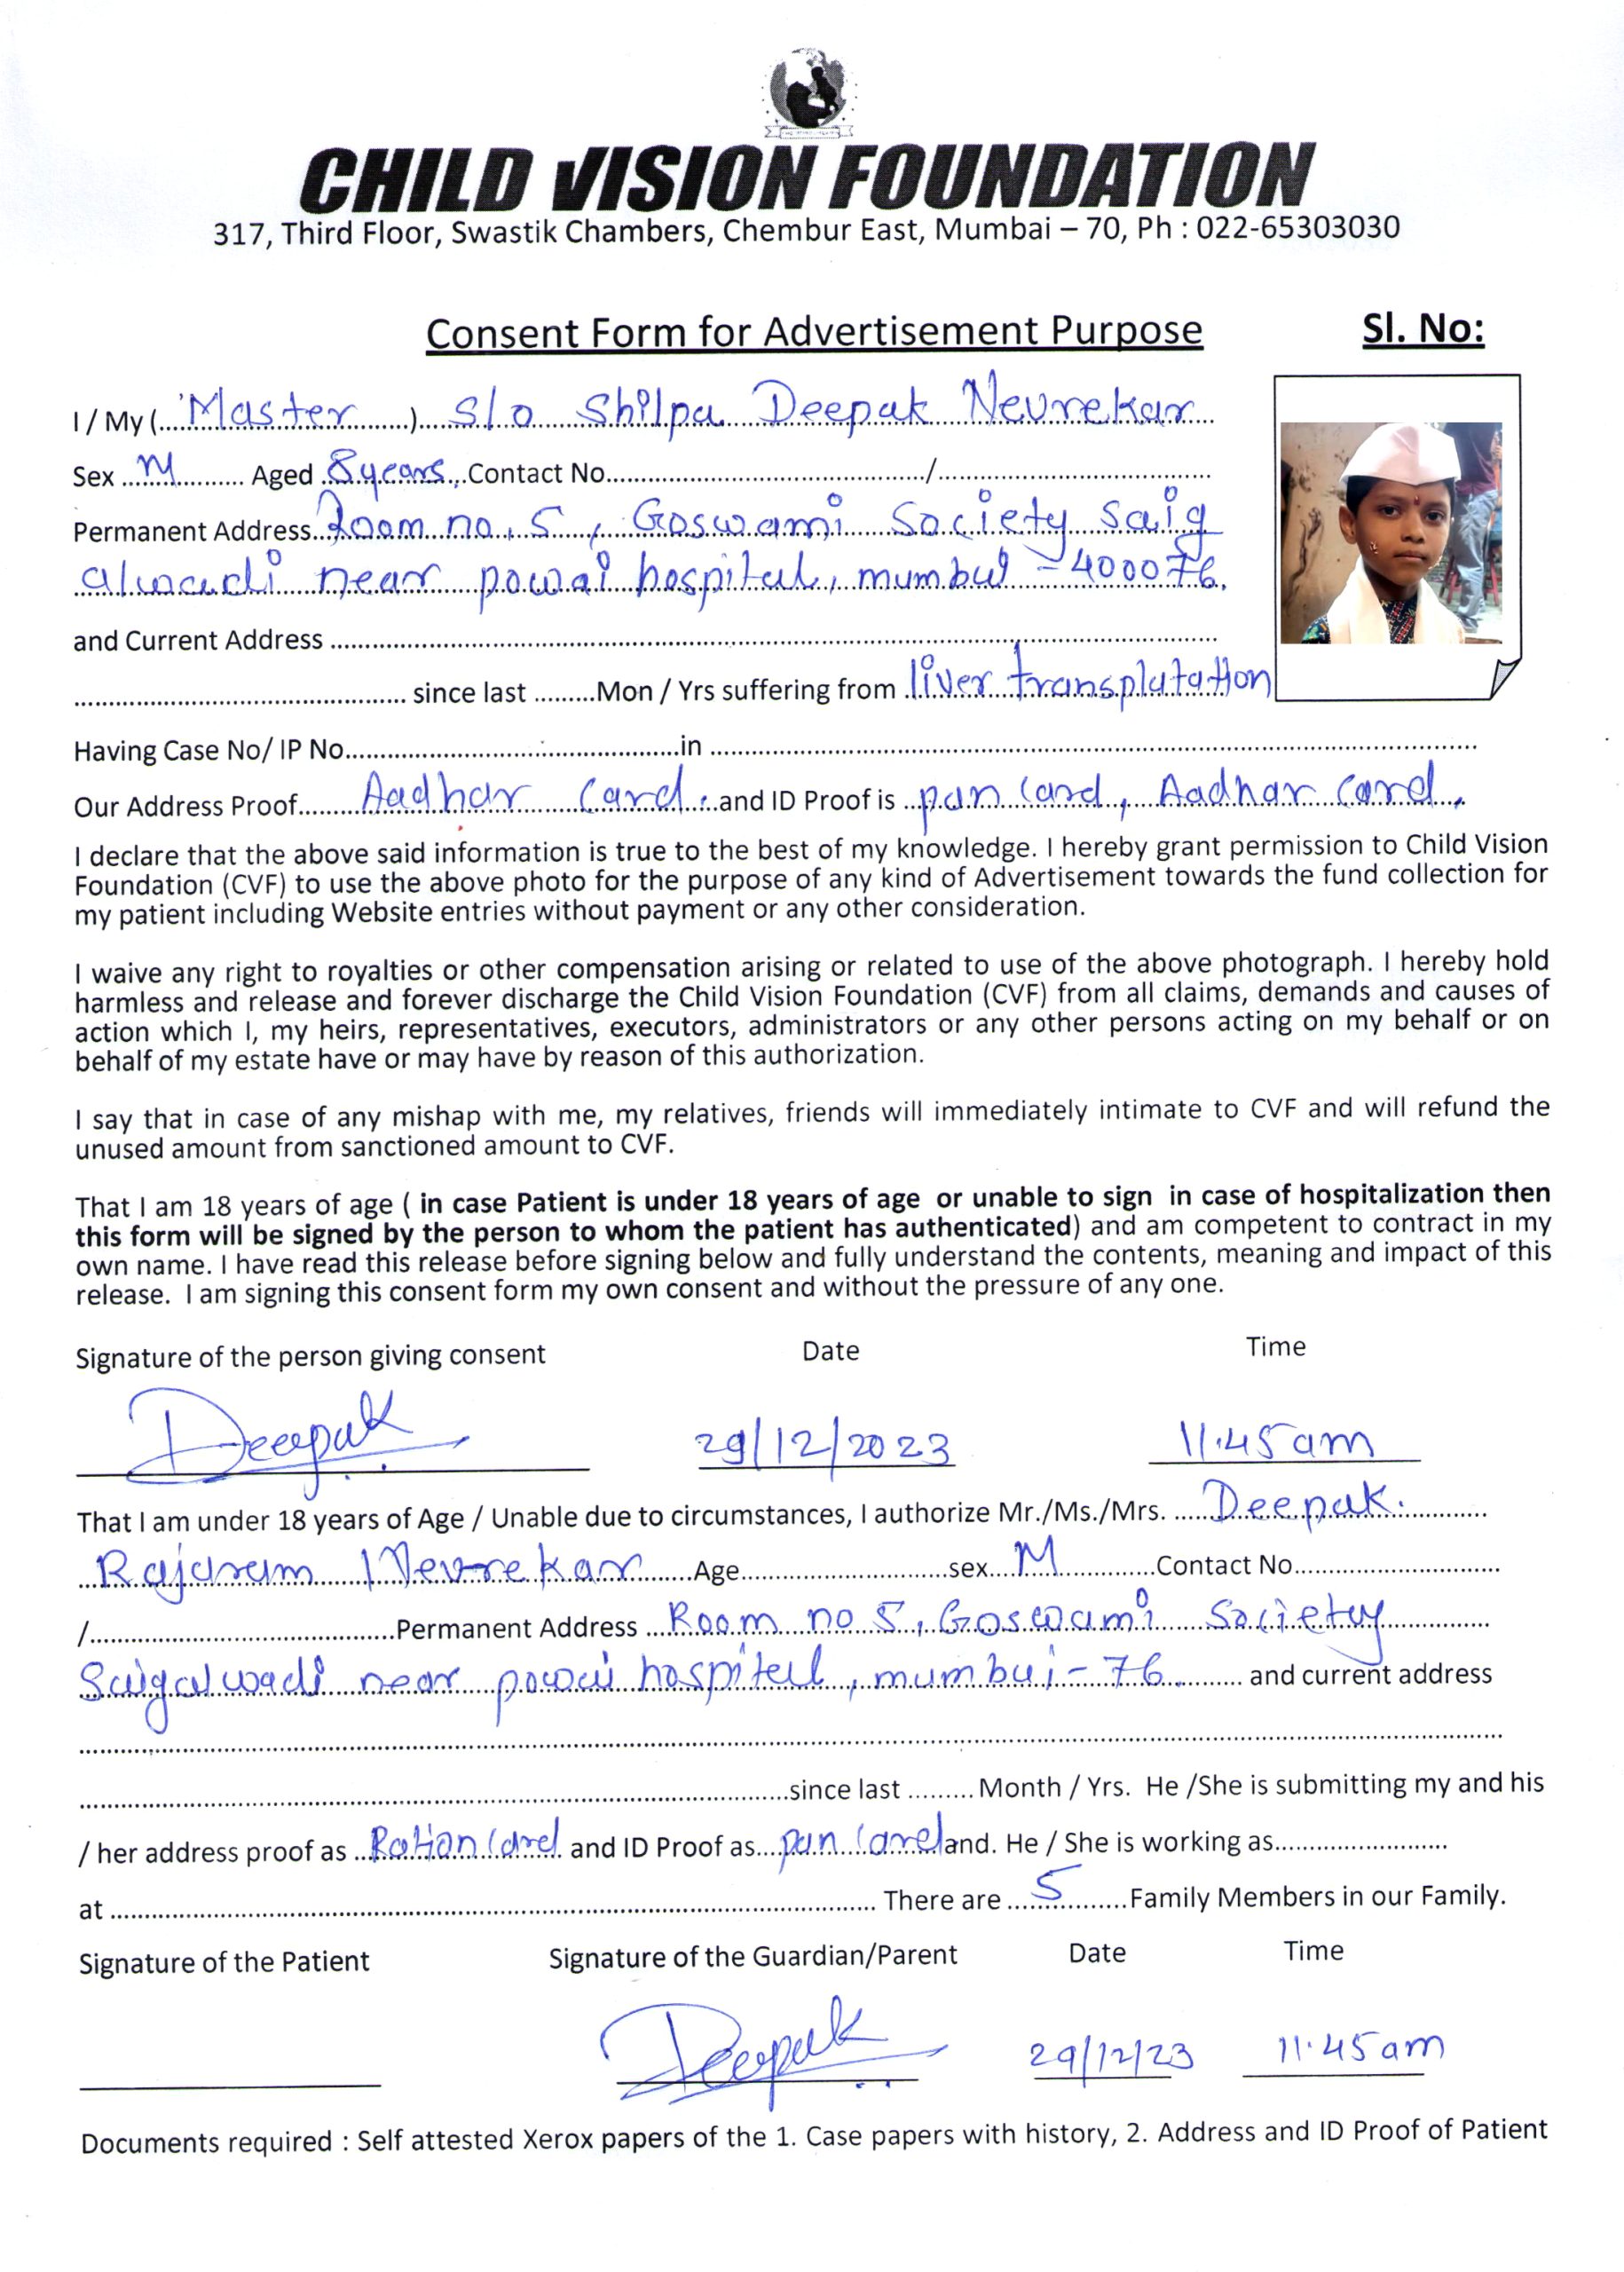 CHILD VISION FOUNDATION
317, Third Floor, Swastik Chambers, Chembur East, Mumbai – 70, Ph : 022-65303030
Consent Form for Advertisement Purpose
Sl. No:
I / My (....Master........).....S/o Shilpa Deepak Nevrekar
Sex ...M.......... Aged 8 years...Contact No......................................../...................................
Permanent Address..Room no. 5, Goswami Society Saig
alwadi near powai hospital, mumbai - 400076.
and Current Address ................................................................................
............................................. since last .........Mon / Yrs suffering from .liver transplatation
Having Case No/ IP No..........................................in ..........................................................................
Our Address Proof.......Aadhar Card...and ID Proof is ..pan card, Aadhar card.
I declare that the above said information is true to the best of my knowledge. I hereby grant permission to Child Vision
Foundation (CVF) to use the above photo for the purpose of any kind of Advertisement towards the fund collection for
my patient including Website entries without payment or any other consideration.
I waive any right to royalties or other compensation arising or related to use of the above photograph. I hereby hold
harmless and release and forever discharge the Child Vision Foundation (CVF) from all claims, demands and causes of
action which I, my heirs, representatives, executors, administrators or any other persons acting on my behalf or on
behalf of my estate have or may have by reason of this authorization.
I say that in case of any mishap with me, my relatives, friends will immediately intimate to CVF and will refund the
unused amount from sanctioned amount to CVF.
That I am 18 years of age ( in case Patient is under 18 years of age or unable to sign in case of hospitalization then
this form will be signed by the person to whom the patient has authenticated) and am competent to contract in my
own name. I have read this release before signing below and fully understand the contents, meaning and impact of this
release. I am signing this consent form my own consent and without the pressure of any one.
Signature of the person giving consent Date Time
Deepak 29/12/2023 11.45 am
That I am under 18 years of Age / Unable due to circumstances, I authorize Mr./Ms./Mrs. .....Deepak.
Rajaram Nevrekar......Age..............................sex...M............Contact No..............................
/............................................Permanent Address ...Room no 5, Goswami Society
Saigalwadi near powai hospital, mumbai - 76......... and current address
..............................................................................................................since last ......... Month / Yrs. He /She is submitting my and his
/ her address proof as ..Ration Card. and ID Proof as...pan Card and. He / She is working as.........................
at ................................................................................................................ There are ....5.......Family Members in our Family.
Signature of the Patient Signature of the Guardian/Parent Date Time
Deepak 29/12/23 11.45 am
Documents required : Self attested Xerox papers of the 1. Case papers with history, 2. Address and ID Proof of Patient